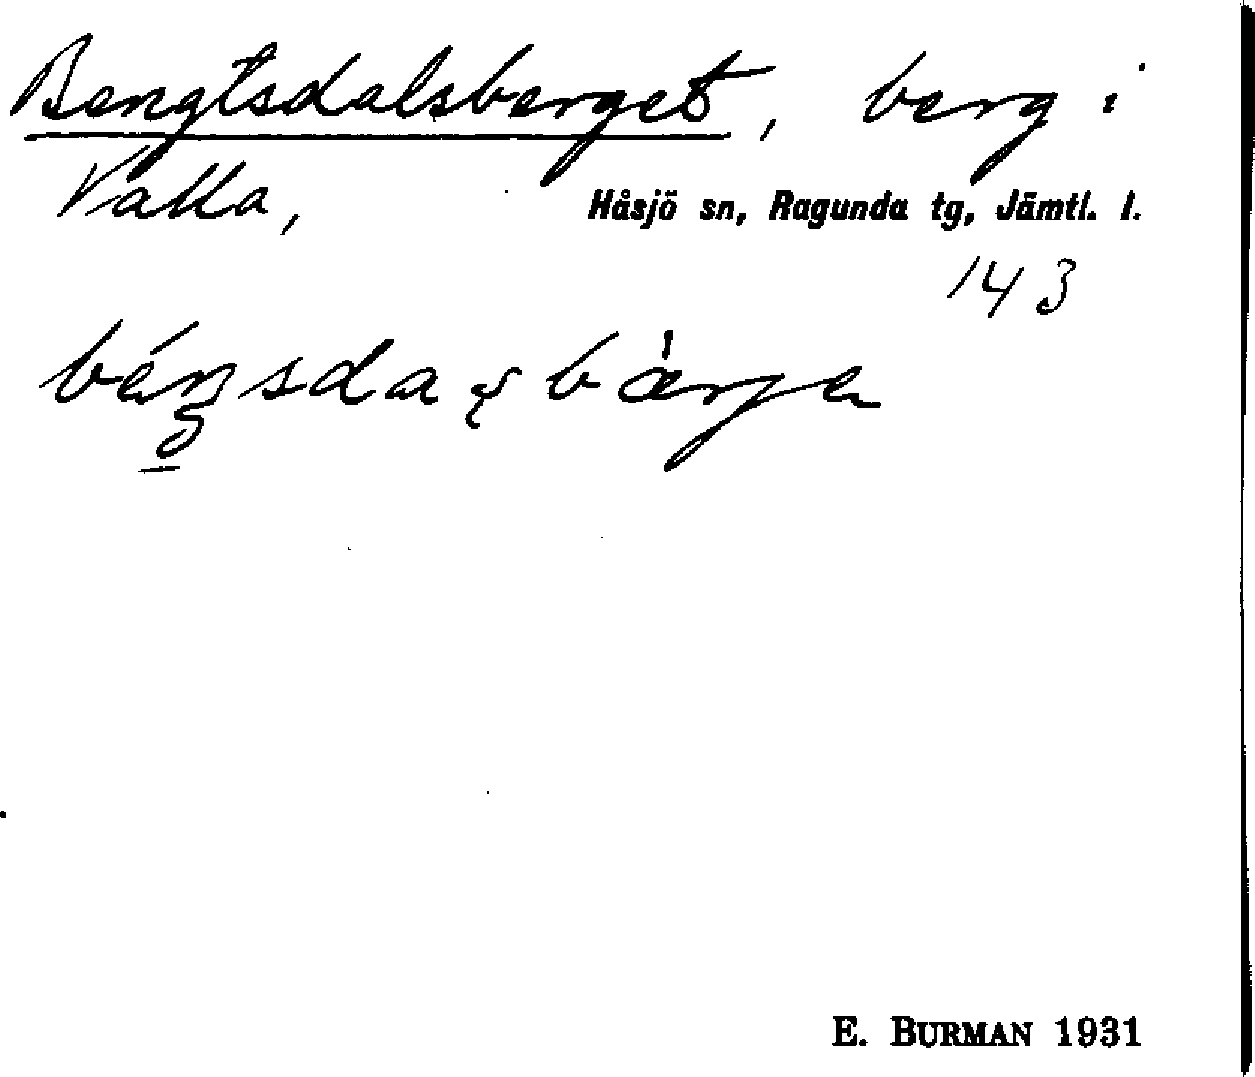 Bengtsdalsberget, berg i
Valla, Håsjö sn, Ragunda tg, Jämtl. l.
143
E. BURMAN 1931